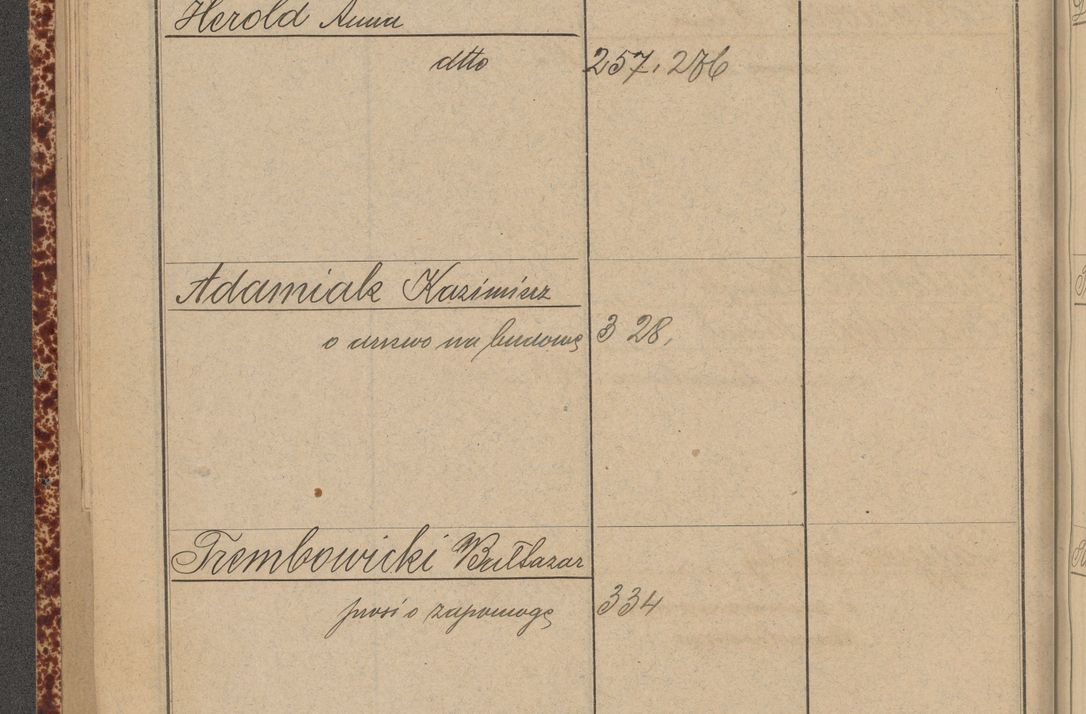 Herold Anna
dtto 257, 276
Adamiak Kazimierz
o drzewo na budowę 3 28,
Trembowicki Baltazar
prosi o zapomogę 334